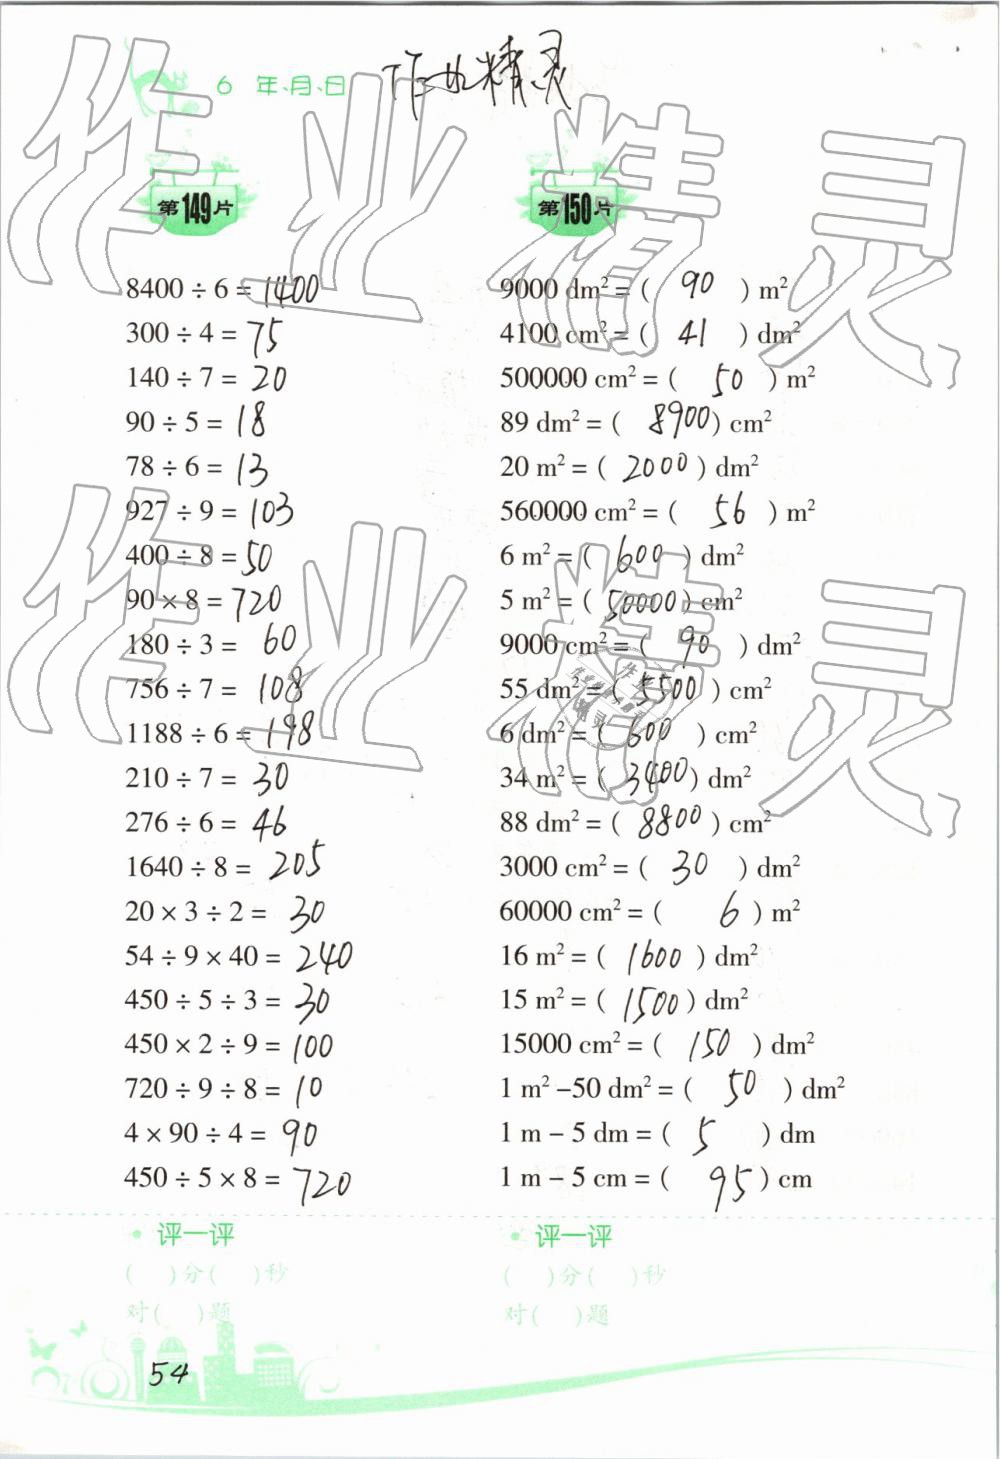 6 年、月、日 作业精灵
作业精灵
第149片
8400 ÷ 6 = 1400
300 ÷ 4 = 75
140 ÷ 7 = 20
90 ÷ 5 = 18
78 ÷ 6 = 13
927 ÷ 9 = 103
400 ÷ 8 = 50
90 × 8 = 720
180 ÷ 3 = 60
756 ÷ 7 = 108
1188 ÷ 6 = 198
210 ÷ 7 = 30
276 ÷ 6 = 46
1640 ÷ 8 = 205
20 × 3 ÷ 2 = 30
54 ÷ 9 × 40 = 240
450 ÷ 5 ÷ 3 = 30
450 × 2 ÷ 9 = 100
720 ÷ 9 ÷ 8 = 10
4 × 90 ÷ 4 = 90
450 ÷ 5 × 8 = 720
评一评
( )分( )秒
对( )题
第150片
9000 dm² = ( 90 ) m²
4100 cm² = ( 41 ) dm²
500000 cm² = ( 50 ) m²
89 dm² = ( 8900 ) cm²
20 m² = ( 2000 ) dm²
560000 cm² = ( 56 ) m²
6 m² = ( 600 ) dm²
5 m² = ( 50000 ) cm²
9000 cm² = ( 90 ) dm²
55 dm² = ( 5500 ) cm²
6 dm² = ( 600 ) cm²
34 m² = ( 3400 ) dm²
88 dm² = ( 8800 ) cm²
3000 cm² = ( 30 ) dm²
60000 cm² = ( 6 ) m²
16 m² = ( 1600 ) dm²
15 m² = ( 1500 ) dm²
15000 cm² = ( 150 ) dm²
1 m² –50 dm² = ( 50 ) dm²
1 m – 5 dm = ( 5 ) dm
1 m – 5 cm = ( 95 ) cm
评一评
( )分( )秒
对( )题
作业精灵
54